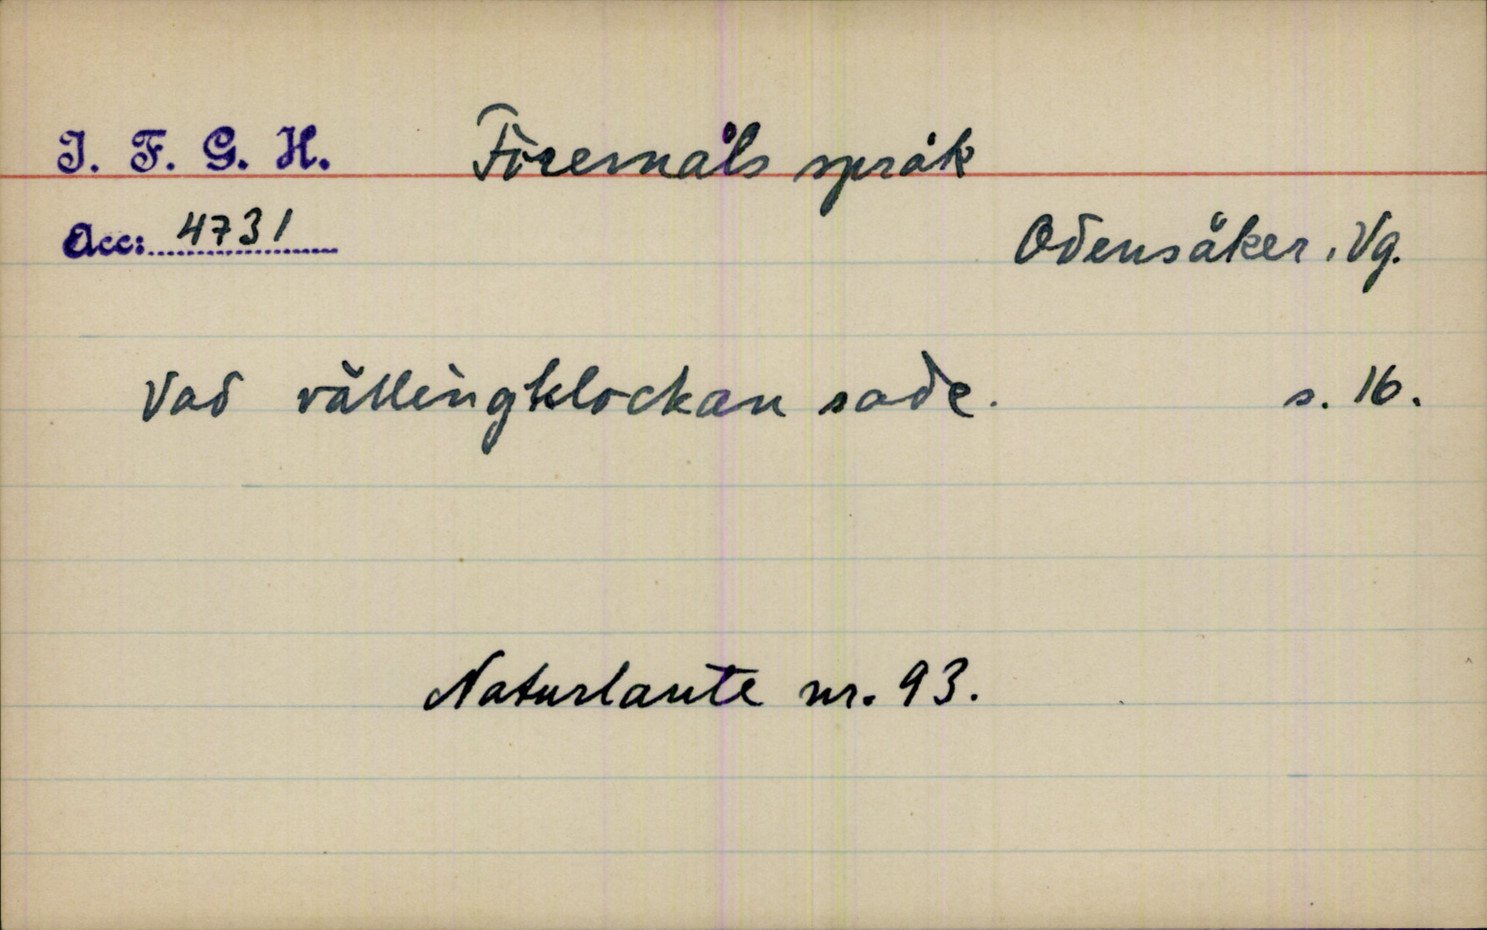 I. F. G. H. Föremåls språk
Acc: 4731
Odensåker, Vg.
Vad vällingklockan sade. s. 16.
Naturlaute nr. 93.